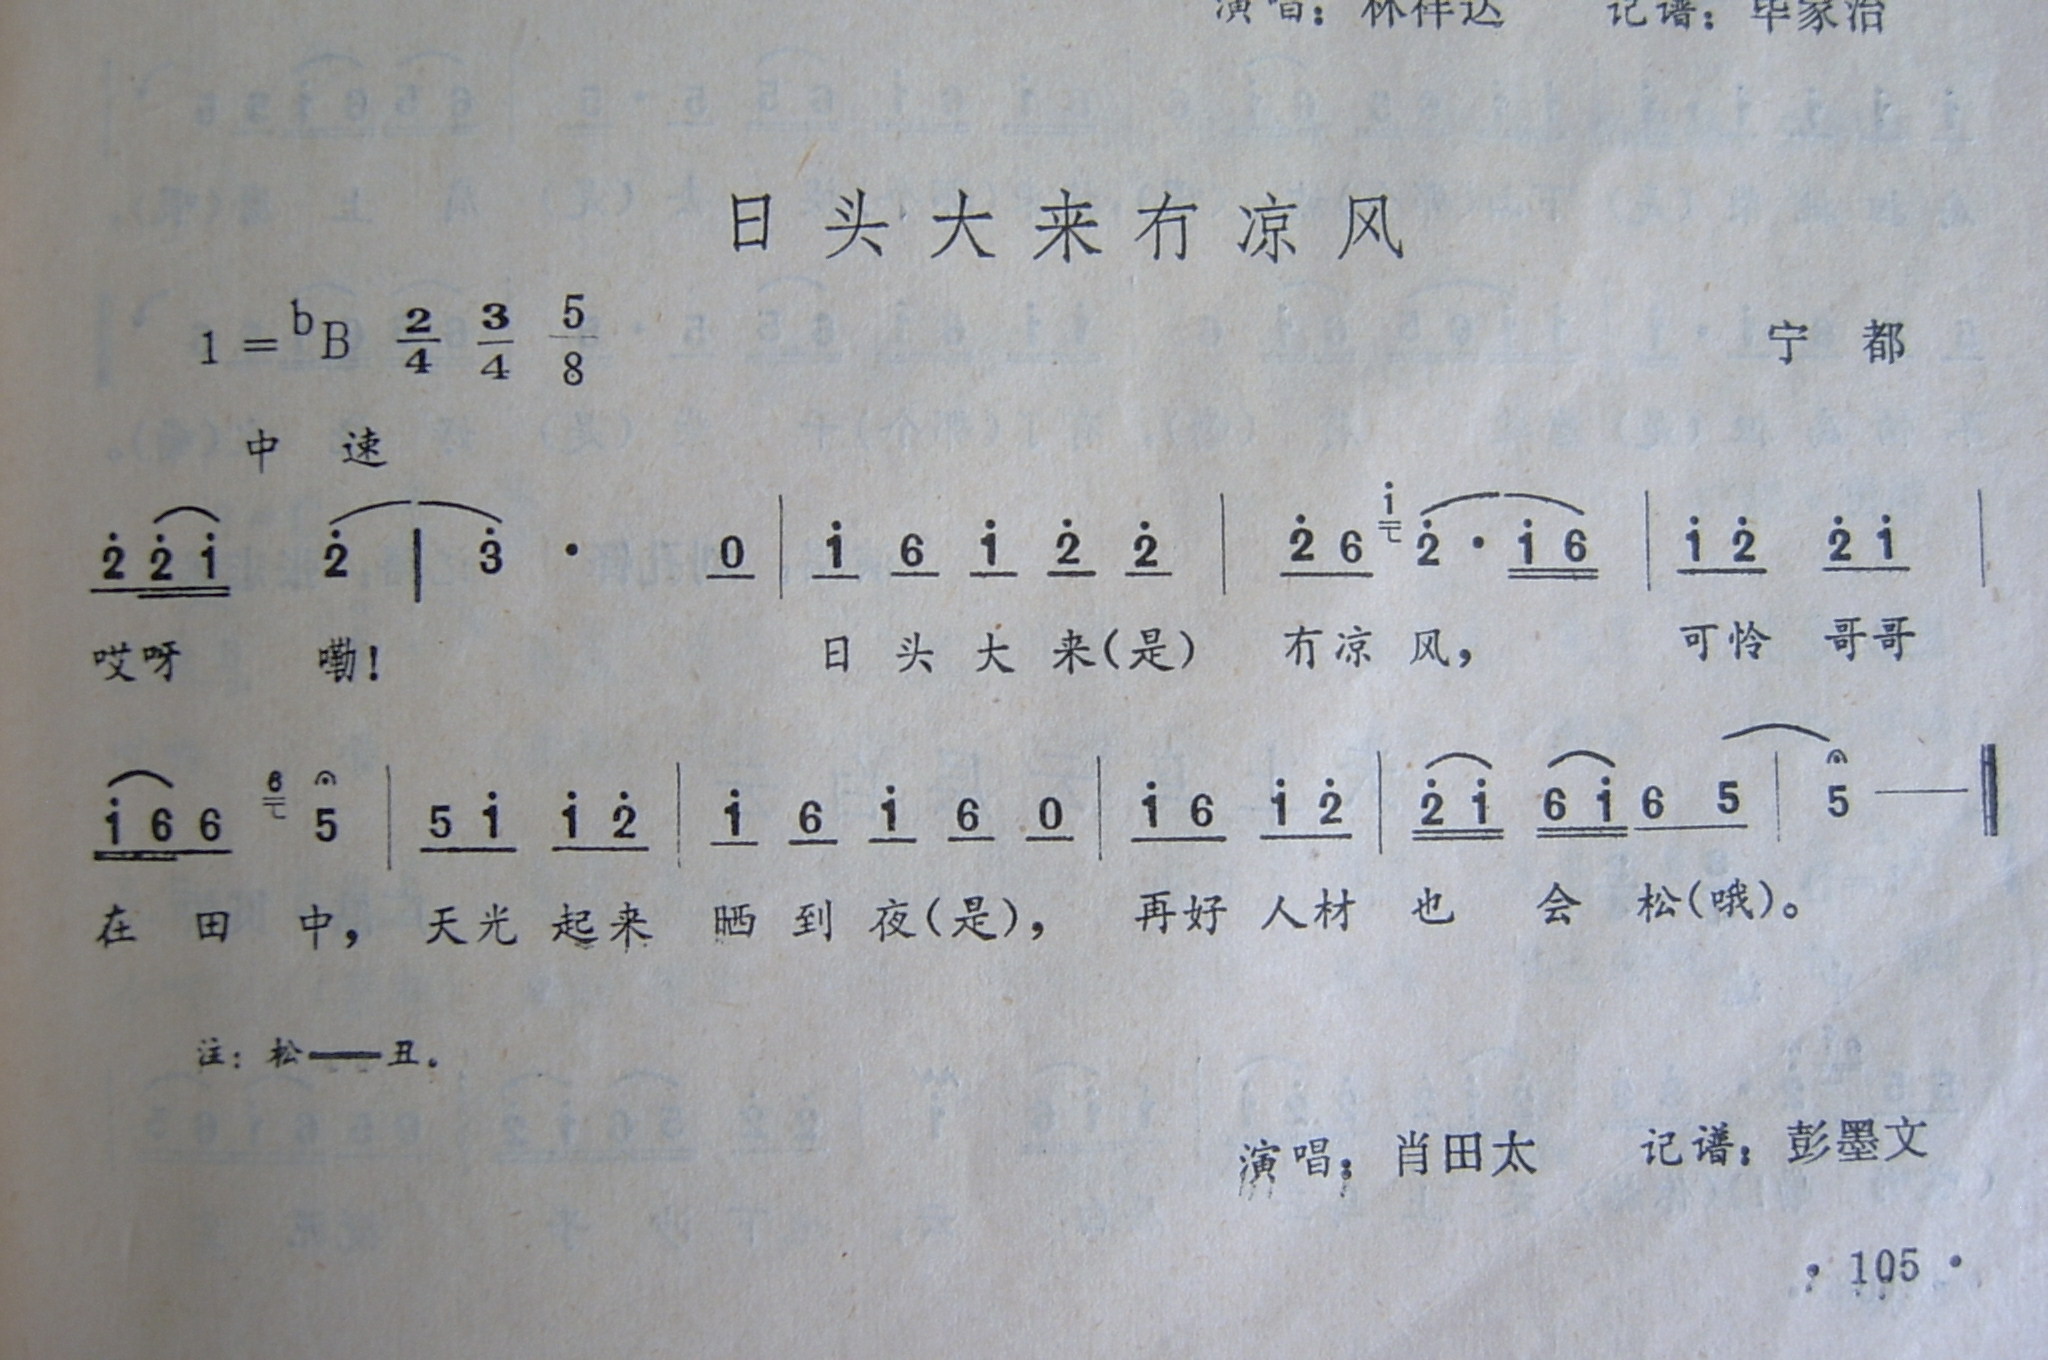 演唱：林祥达 记谱：毕家治
日头大来冇凉风
1=ᵇB 2/4 3/4 5/8 宁都
中速
2̇ 2̇ 1̇ 2̇ | 3̇ · 0 | 1̇ 6 1̇ 2̇ 2̇ | 2̇ 6 1̇ 2̇ · 1̇ 6 | 1̇ 2̇ 2̇ 1̇ |
哎呀 嘞！ 日头大来（是） 冇凉风， 可怜哥哥
1̇ 6 6 6 5 | 5 1̇ 1̇ 2̇ | 1̇ 6 1̇ 6 0 | 1̇ 6 1̇ 2̇ | 2̇ 1̇ 6 1̇ 6 5 | 5 — ‖
在田中， 天光起来 晒到夜（是）， 再好人材 也会松（哦）。
注：松——丑。
演唱：肖田太 记谱：彭墨文
·105·